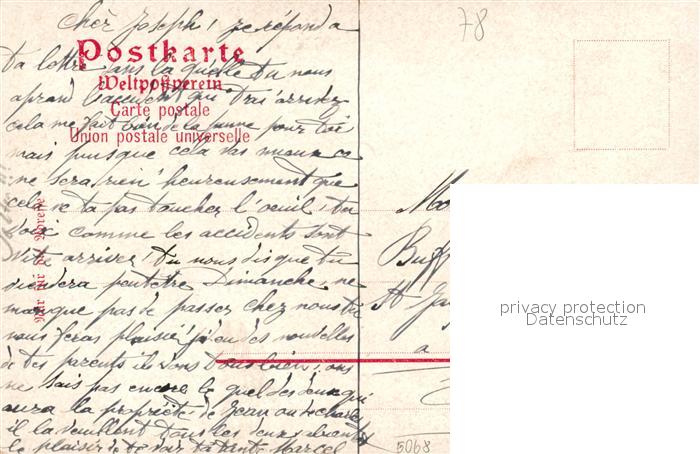 cher Joseph, je répond a
Postkarte
ta lettre dans la quelle tu nous
Weltpostverein
aprand l'accident qui t'ai arrivez
Carte postale
cela me fait bien de la peine pour toi
Union postale universelle
mais puisque cela vas mieux ce
ne sera rien heureusement que
cela ne ta pas toucher l'oeuil, tu
vois comme les accidents sont
vite arrivez, tu nous dis que tu
viendera peutetre Dimanche, ne
manque pas de passer chez nous tu
nous feras plaisir j'ai eu des nouvelles
de tes parents ils vons tous bien, ons
ne sais pas encore le quel des deux qui
aura la propriété de Jean ou de charles
il la veullent tous les deux
le plaisir de te voir ta tante Marcel
Nur für die Adresse
78
Mo
Buff
St Ja
a
5068
privacy protection
Datenschutz